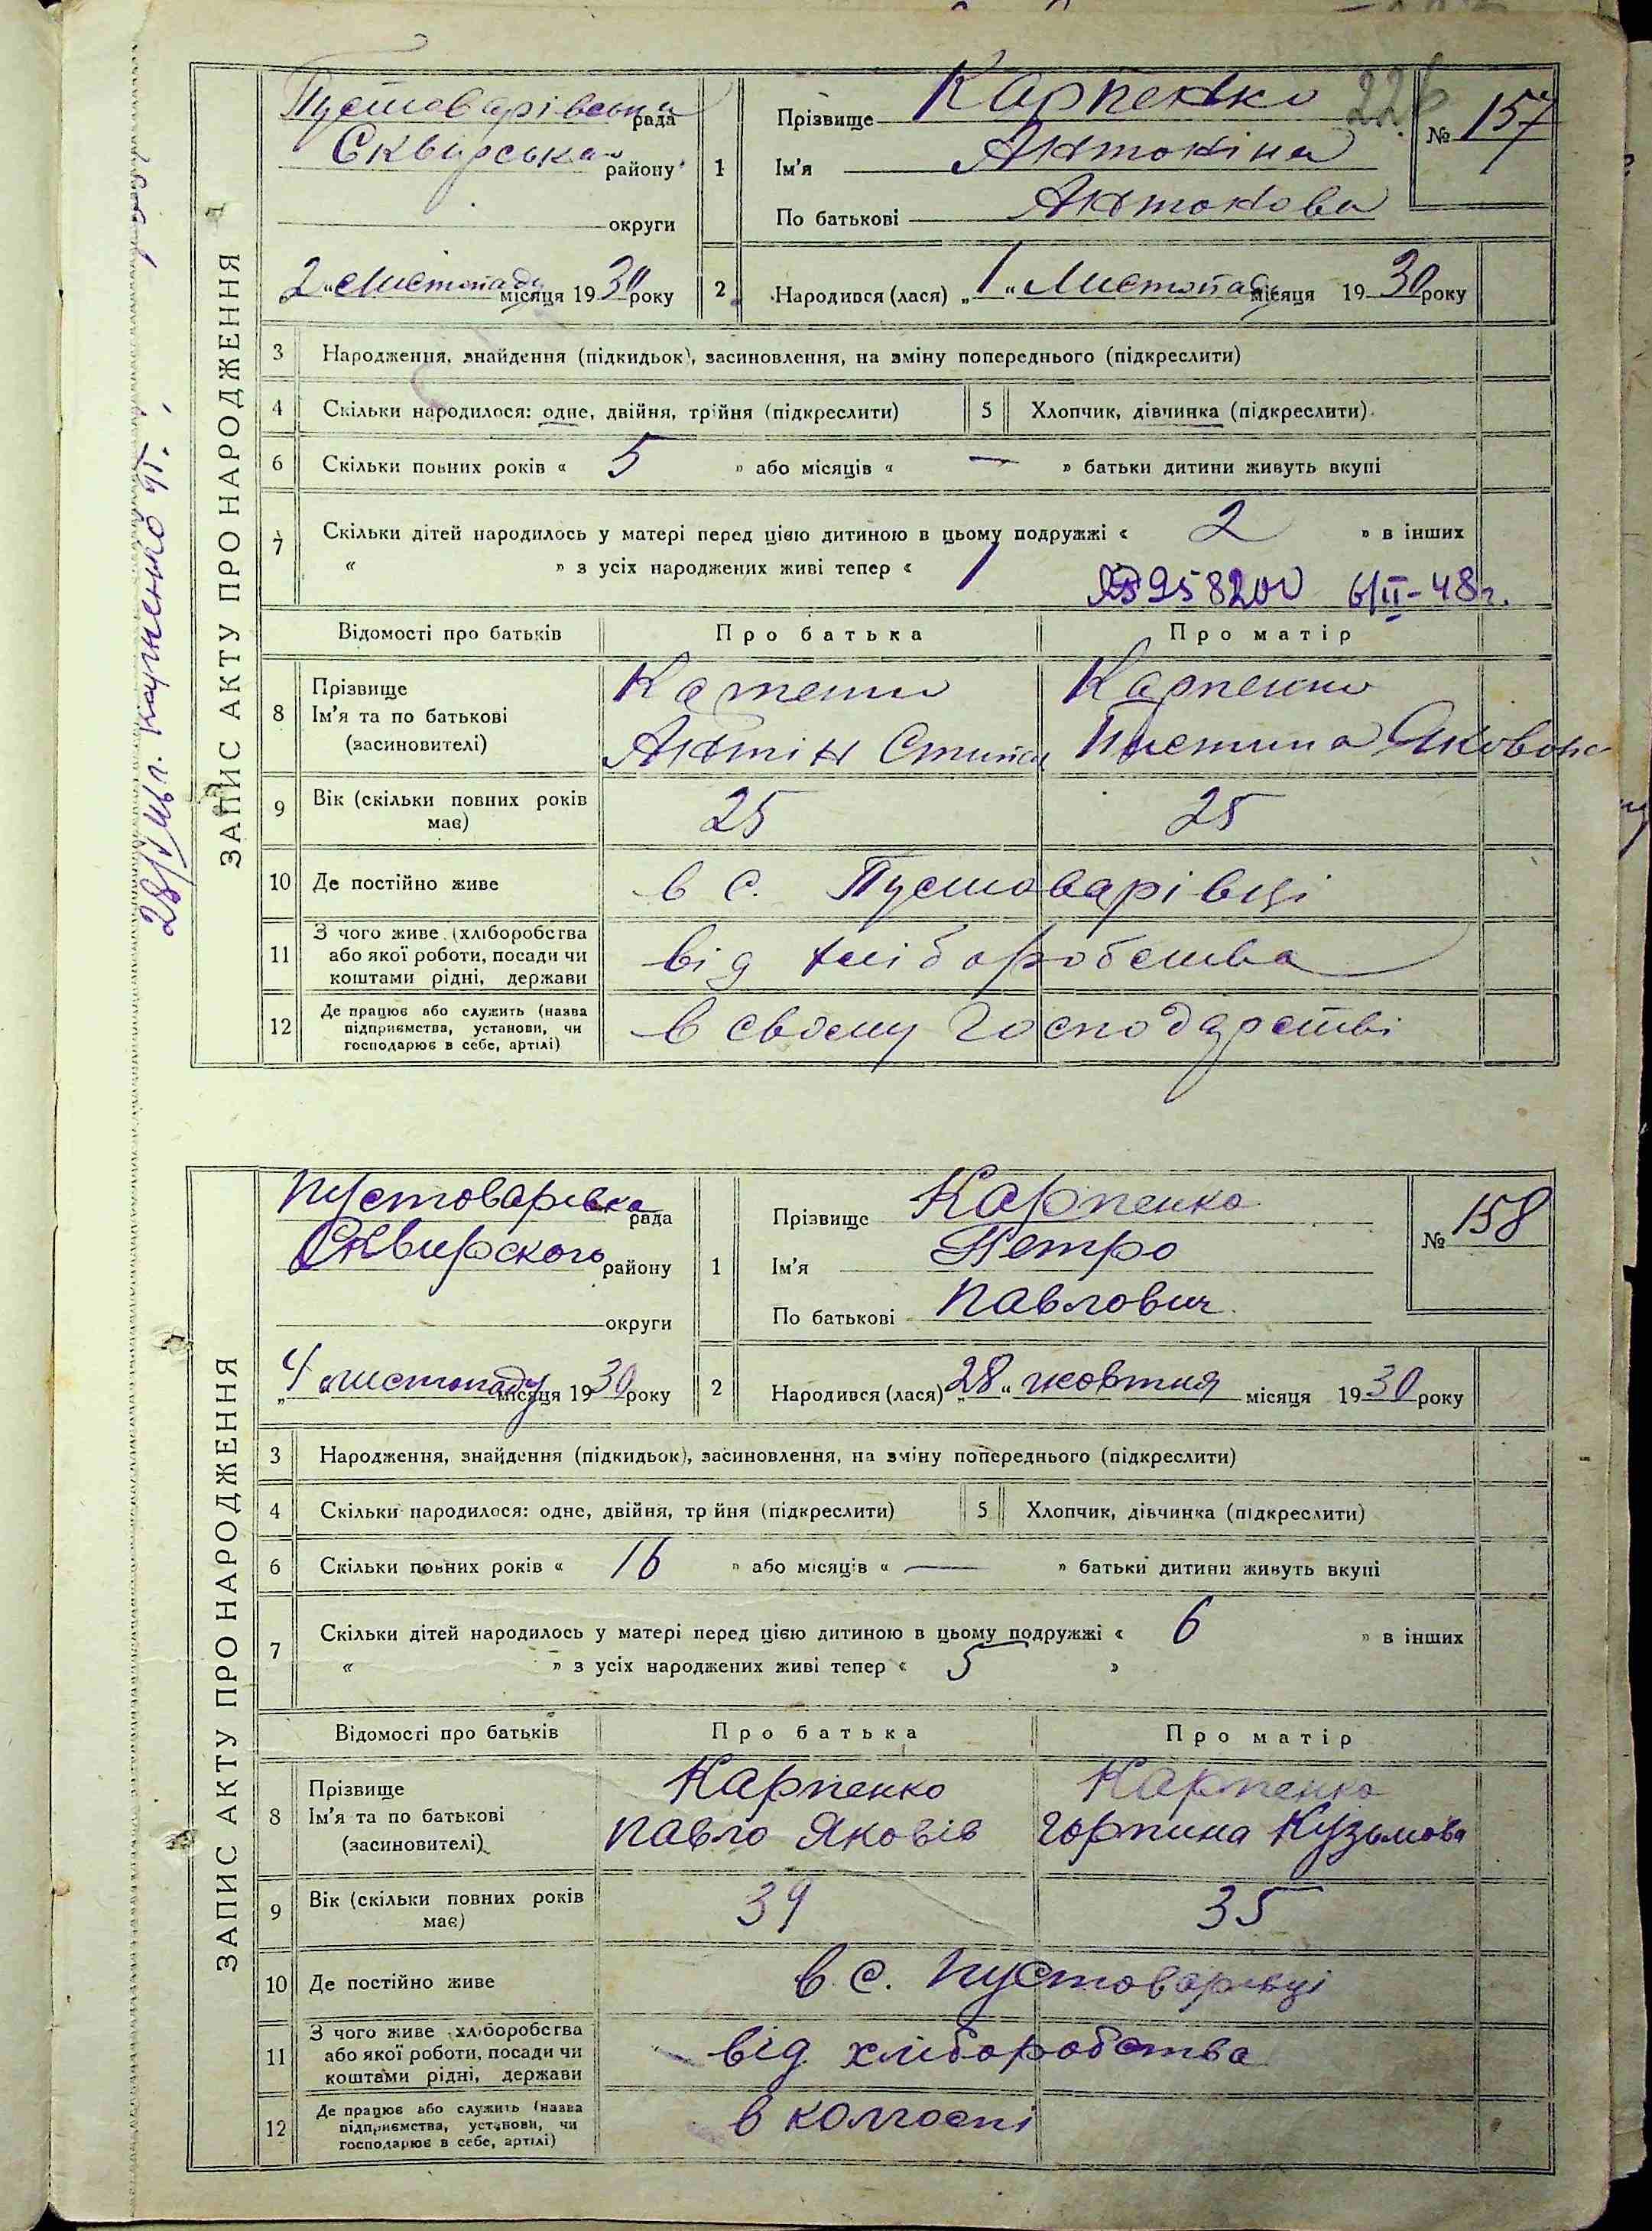 226
ЗАПИС АКТУ ПРО НАРОДЖЕННЯ
Пустоварівська рада
Сквирська району
округи
"2" Листопаду місяця 1930 року
1
Прізвище Карпенко
Ім'я Антоніна
По батькові Антонова
№ 157
2
Народився (лася) „1“ Листопаду місяця 1930 року
3 Народження, знайдення (підкидьок), засиновлення, на зміну попереднього (підкреслити)
4 Скільки народилося: одне, двійня, трійня (підкреслити)
5 Хлопчик, дівчинка (підкреслити)
6 Скільки повних років « 5 » або місяців « — » батьки дитини живуть вкупі
7 Скільки дітей народилось у матері перед цією дитиною в цьому подружжі « 2 » в інших
« » з усіх народжених живі тепер « 1
958200 6/II-48г.
Відомості про батьків Про батька Про матір
8 Прізвище
Ім'я та по батькові
(засиновителі)
Антін
Карпенко
Яковова
9 Вік (скільки повних років має) 25 25
10 Де постійно живе в с. Пустоварівці
11 З чого живе (хліборобства або якої роботи, посади чи коштами рідні, держави від хліборобства
12 Де працює або служить (назва підприємства, установи, чи господарює в себе, артілі) в своєму господарстві
ЗАПИС АКТУ ПРО НАРОДЖЕННЯ
Пустоварівка рада
Сквирского району
округи
„4“ листопаду місяця 1930 року
1
Прізвище Карпенко
Ім'я Петро
По батькові Павлович
№ 158
2
Народився (лася) „28“ жовтня місяця 1930 року
3 Народження, знайдення (підкидьок), засиновлення, на зміну попереднього (підкреслити)
4 Скільки народилося: одне, двійня, тр йня (підкреслити)
5 Хлопчик, дівчинка (підкреслити)
6 Скільки повних років « 16 » або місяців « — » батьки дитини живуть вкупі
7 Скільки дітей народилось у матері перед цією дитиною в цьому подружжі « 6 » в інших
« » з усіх народжених живі тепер « 5 »
Відомості про батьків Про батька Про матір
8 Прізвище
Ім'я та по батькові
(засиновителі)
Карпенко
Павло Яковів
Карпенко
Горпина Кузьмова
9 Вік (скільки повних років має) 39 35
10 Де постійно живе в с. Пустоварівці
11 З чого живе хліборобства або якої роботи, посади чи коштами рідні, держави від хліборобства
12 Де працює або служить (назва підприємства, установи, чи господарює в себе, артілі) в колгоспі